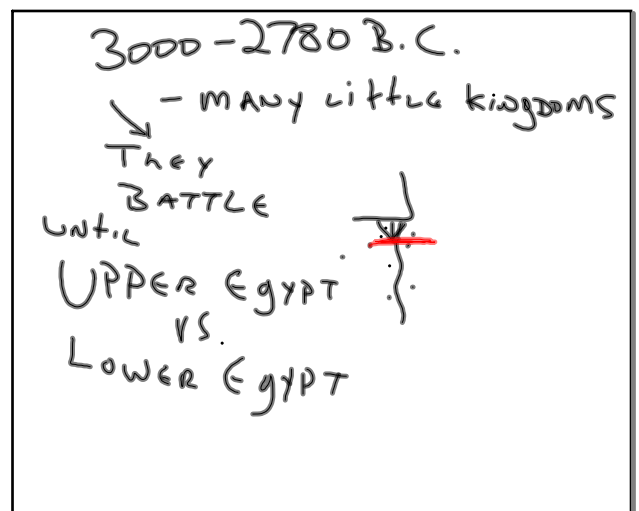 3000-2780 B.C.
- MANY LittLE kingDOMS
ThEY
BATTLE
UNtiL
UPPER EgYPT
VS.
LOWER EgYPT